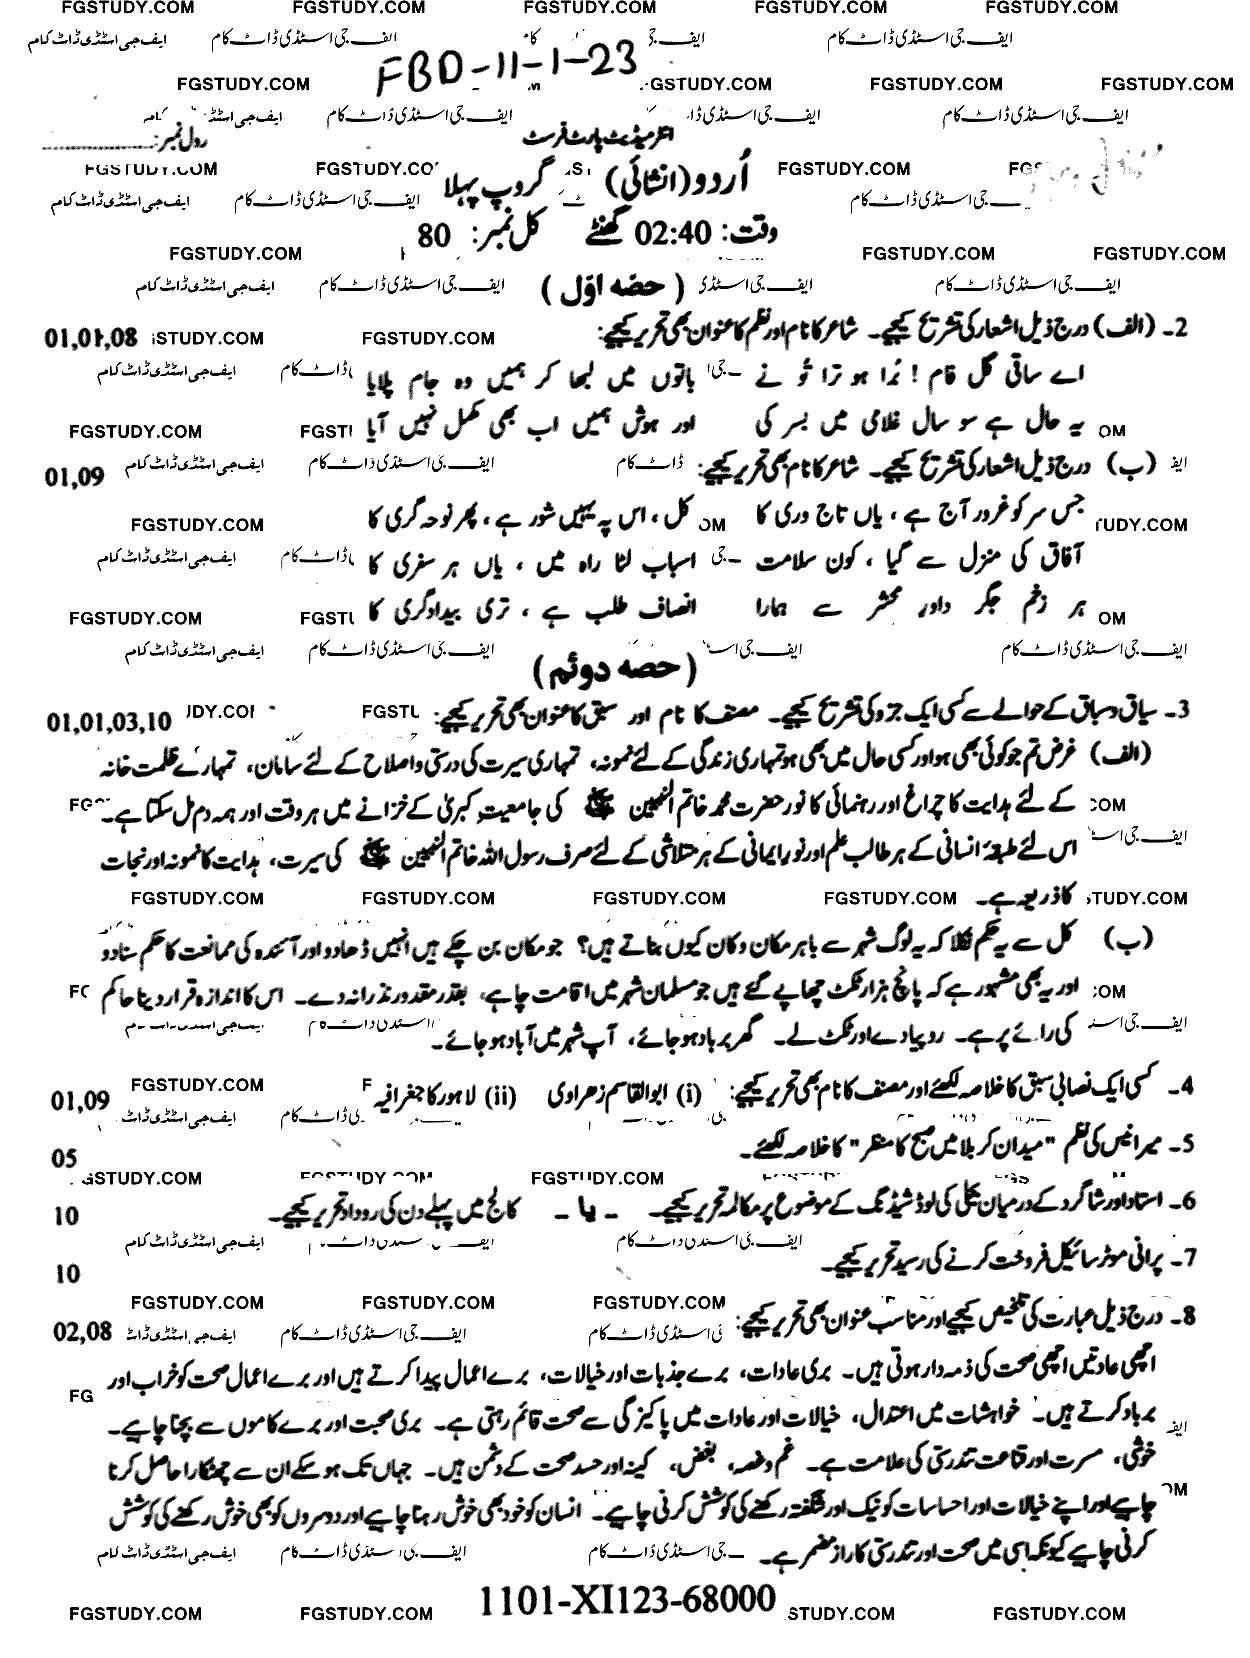 FBD-11-1-23
انٹرمیڈیٹ پارٹ فرسٹ
رول نمبر:
اُردو (انشائی) گروپ پہلا
وقت: 02:40 گھنٹے کل نمبر: 80
( حصّہ اوّل )
2- (الف) درج ذیل اشعار کی تشریح کیجیے۔ شاعر کا نام اور نظم کا عنوان بھی تحریر کیجیے: 01,01,08
اے ساقی گل فام ! بُرا ہو ترا تُو نے باتوں میں لبھا کر ہمیں وہ جام پلایا
یہ حال ہے سو سال غلامی میں بسر کی اور ہوش ہمیں اب بھی مکمل نہیں آیا
(ب) درج ذیل اشعار کی تشریح کیجیے۔ شاعر کا نام بھی تحریر کیجیے: 01,09
جس سر کو غرور آج ہے، یاں تاج وری کا کل، اس پہ یہیں شور ہے، پھر نوحہ گری کا
آفاق کی منزل سے گیا ، کون سلامت اسباب لٹا راہ میں ، یاں ہر سفری کا
ہر زخم جگر داور محشر سے ہمارا انصاف طلب ہے ، تری بیدادگری کا
(حصہ دوئم)
3- سیاق و سباق کے حوالے سے کسی ایک جزو کی تشریح کیجیے۔ مصنف کا نام اور سبق کا عنوان بھی تحریر کیجیے: 01,01,03,10
(الف) غرض تم جو کوئی بھی ہو اور کسی حال میں بھی ہو تمہاری زندگی کے لئے نمونہ، تمہاری سیرت کی درستی و اصلاح کے لئے سامان، تمہارے ظلمت خانہ
کے لئے ہدایت کا چراغ اور رہنمائی کا نور حضرت محمد خاتم النبیین ﷺ کی جامعیتِ کبریٰ کے خزانے میں ہر وقت اور ہمہ دم مل سکتا ہے۔
اس لئے طبقۂ انسانی کے ہر طالب علم اور نور ایمانی کے ہر متلاشی کے لئے صرف رسول اللہ خاتم النبیین ﷺ کی سیرت، ہدایت کا نمونہ اور نجات
کا ذریعہ ہے۔
(ب) کل سے یہ حکم نکلا کہ یہ لوگ شہر سے باہر مکان وکان کیوں بناتے ہیں؟ جو مکان بن چکے ہیں انہیں ڈھا دو اور آئندہ کی ممانعت کا حکم سنا دو
اور یہ بھی مشہور ہے کہ پانچ ہزار ٹکٹ چھاپے گئے ہیں جو مسلمان شہر میں اقامت چاہے، بقدر مقدور نذرانہ دے۔ اس کا اندازہ قرار دینا حاکم
کی رائے پر ہے۔ روپیا دے اور ٹکٹ لے۔ گھر برباد ہو جائے، آپ شہر میں آباد ہو جائے۔
4- کسی ایک نصابی سبق کا خلاصہ لکھئے اور مصنف کا نام بھی تحریر کیجیے: (i) ابوالقاسم زھراوی (ii) لاہور کا جغرافیہ 01,09
5- میر انیس کی نظم "میدان کربلا میں صبح کا منظر" کا خلاصہ لکھئے۔ 05
6- استاد اور شاگرد کے درمیان بجلی کی لوڈ شیڈنگ کے موضوع پر مکالمہ تحریر کیجیے۔ ۔ یا۔ کالج میں پہلے دن کی روداد تحریر کیجیے۔ 10
7- پرانی موٹر سائیکل فروخت کرنے کی رسید تحریر کیجیے۔ 10
8- درج ذیل عبارت کی تلخیص کیجیے اور مناسب عنوان بھی تحریر کیجیے: 02,08
اچھی عادتیں اچھی صحت کی ذمہ دار ہوتی ہیں۔ بری عادات، برے جذبات اور خیالات، برے اعمال پیدا کرتے ہیں اور برے اعمال صحت کو خراب اور
برباد کرتے ہیں۔ خواہشات میں اعتدال، خیالات اور عادات میں پاکیزگی سے صحت قائم رہتی ہے۔ بری صحبت اور برے کاموں سے بچنا چاہیے۔
خوشی، مسرت اور قناعت تندرستی کی علامت ہے۔ غم و غصہ، بغض، کینہ اور حسد صحت کے دشمن ہیں۔ جہاں تک ہو سکے ان سے چھٹکارا حاصل کرنا
چاہیے اور اپنے خیالات اور احساسات کو نیک اور شگفتہ رکھنے کی کوشش کرنی چاہیے۔ انسان کو خود بھی خوش رہنا چاہیے اور دوسروں کو بھی خوش رکھنے کی کوشش
کرنی چاہیے کیونکہ اسی میں صحت اور تندرستی کا راز مضمر ہے۔
1101-XI123-68000